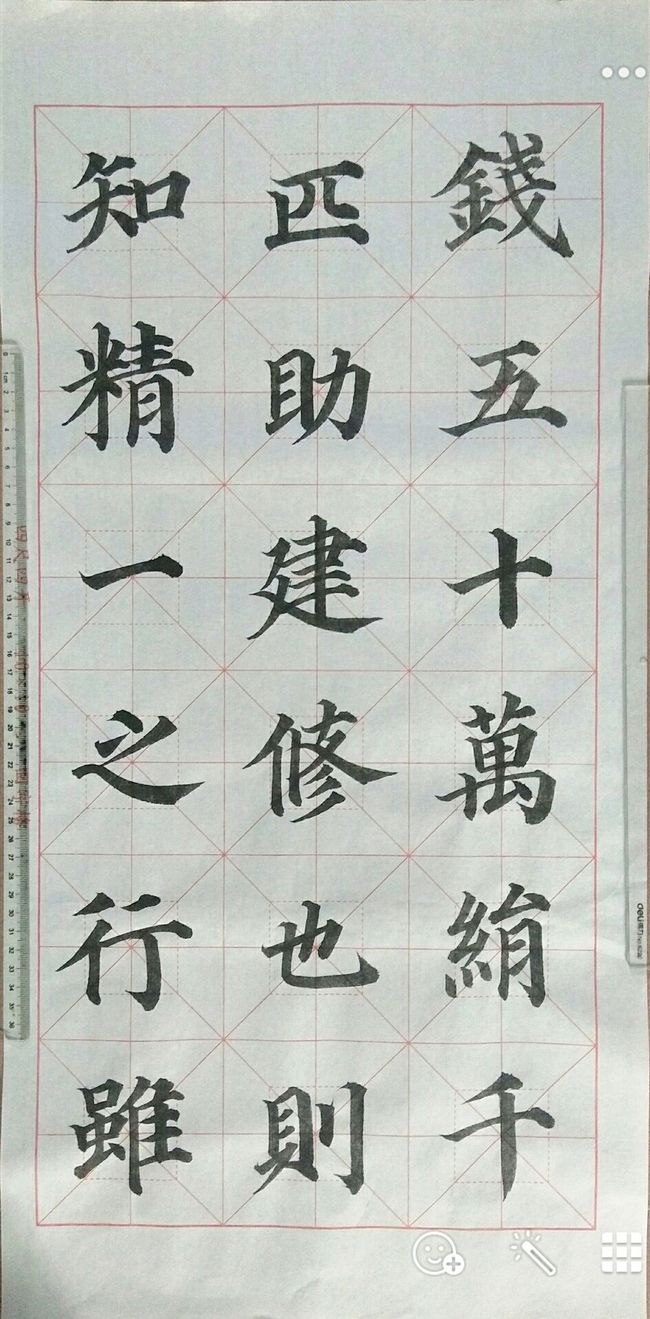 錢五十萬絹千
匹助建修也則
知精一之行雖
deli